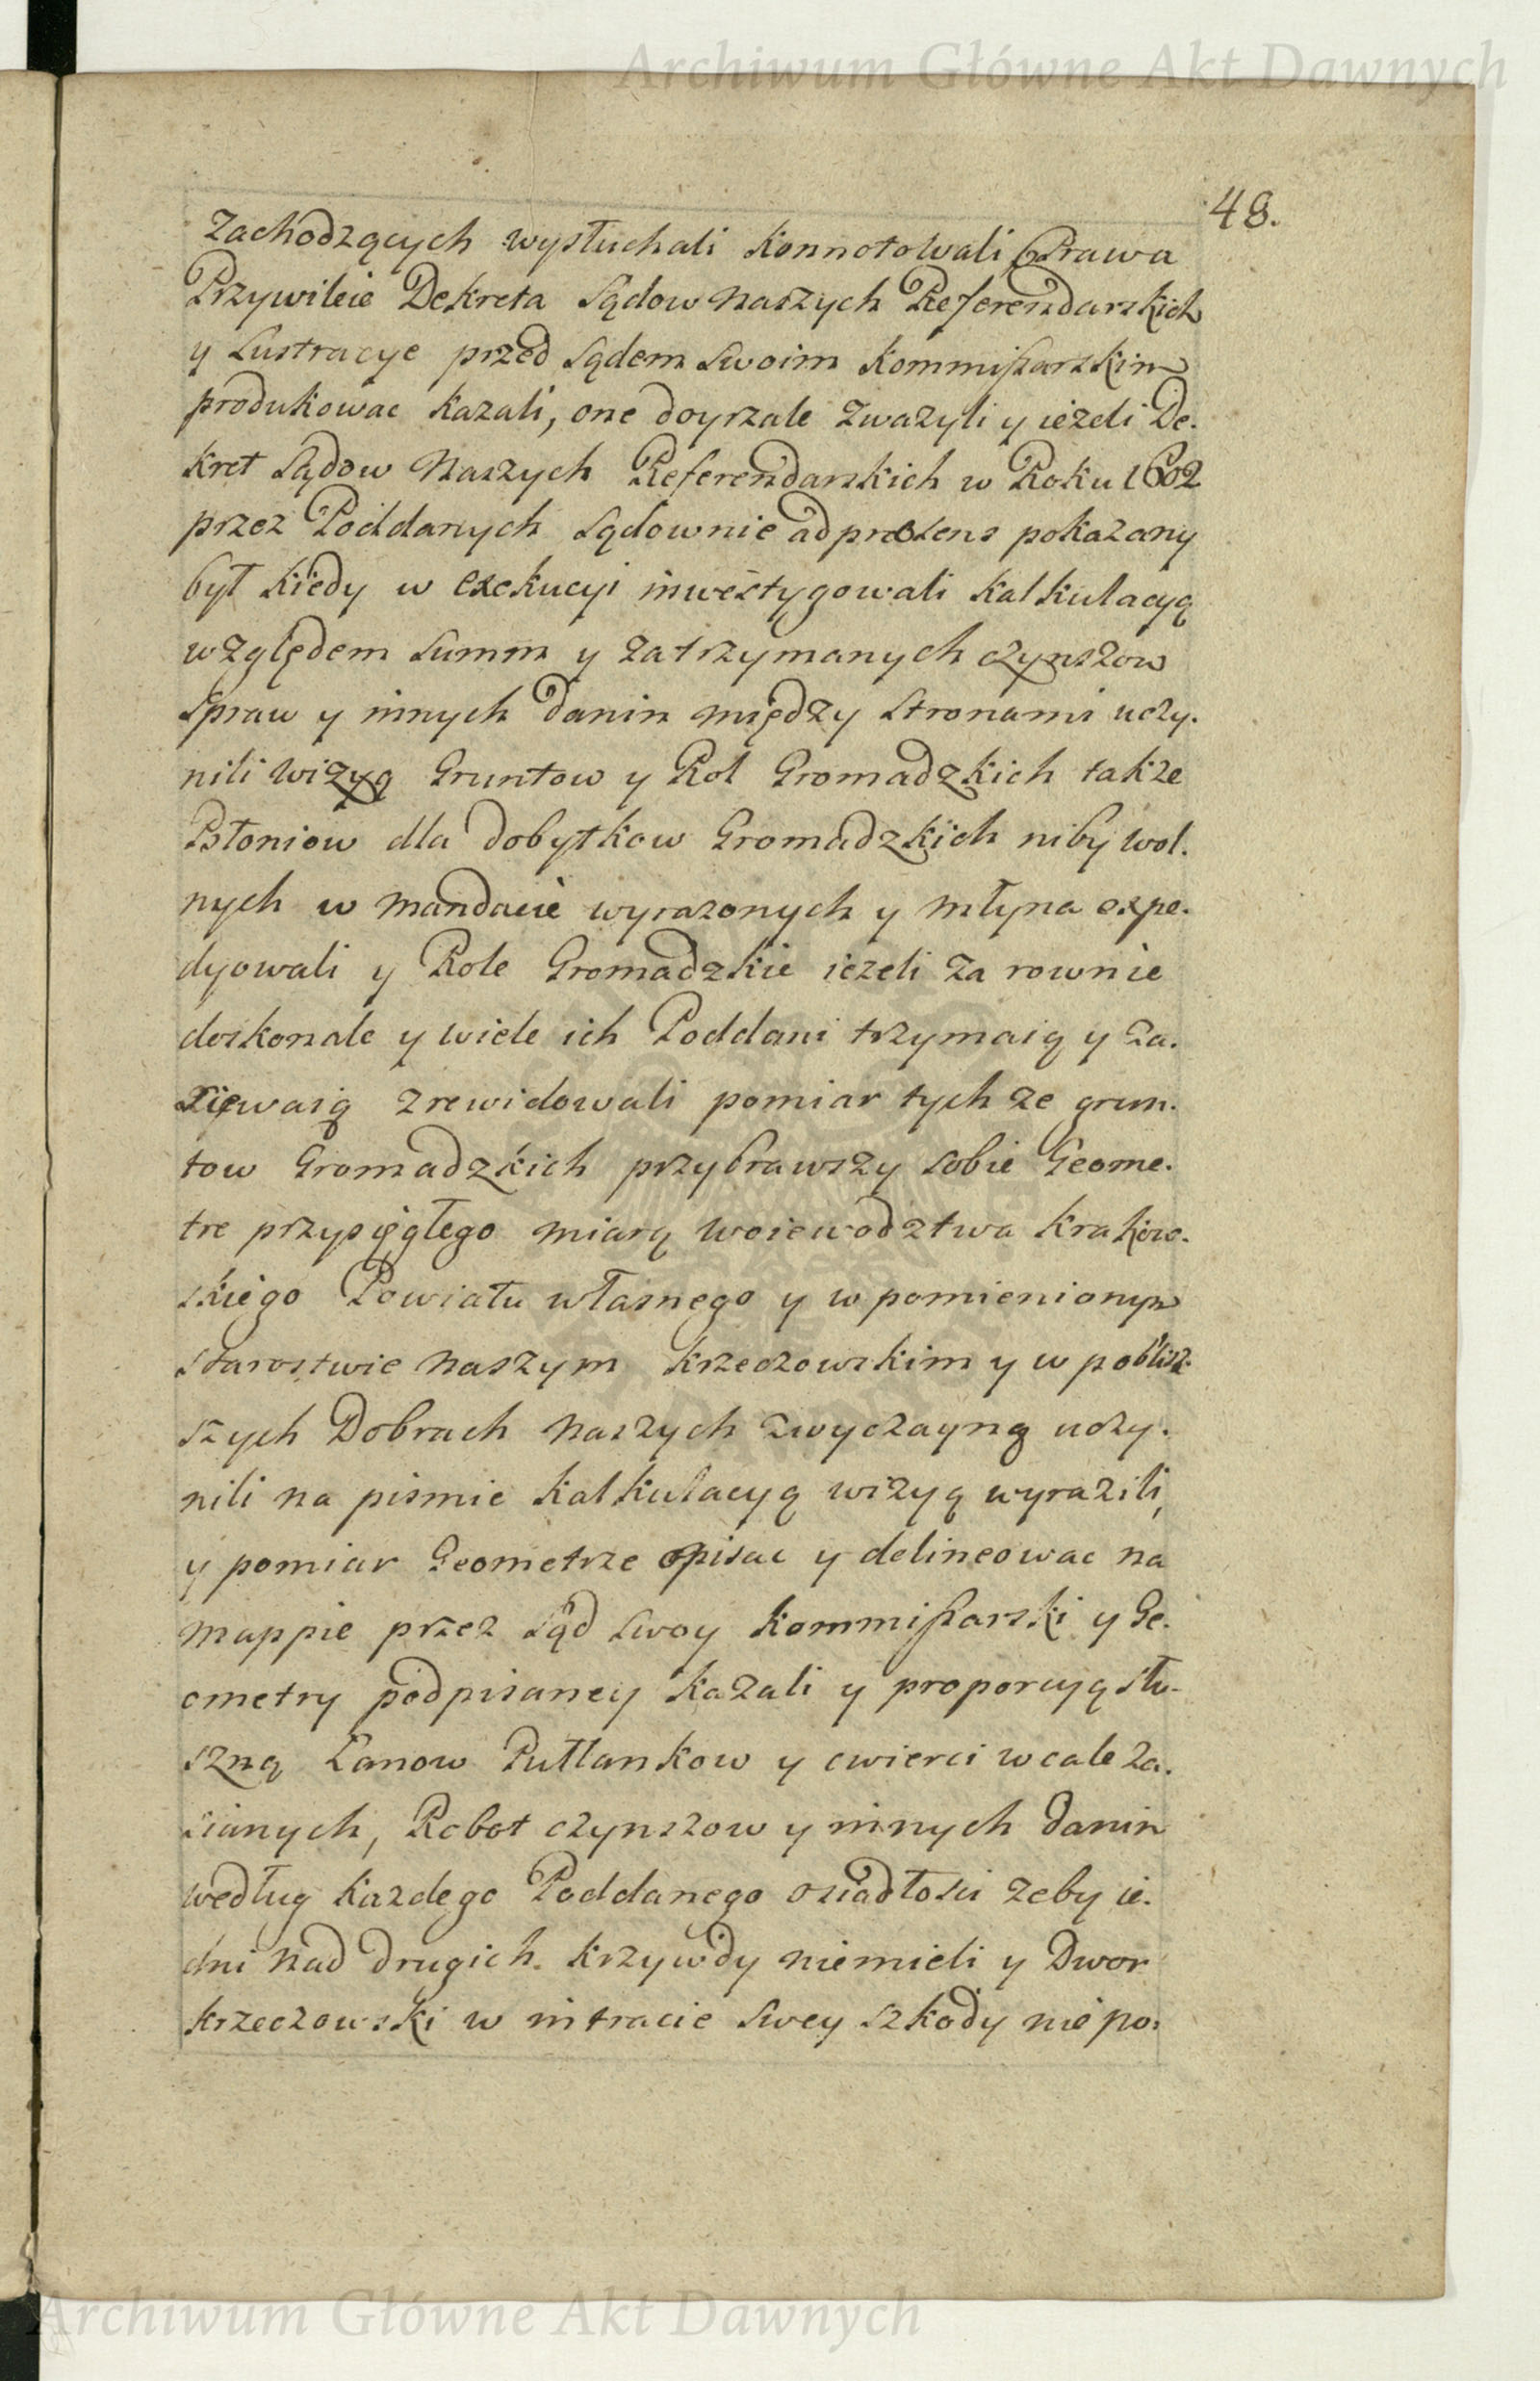 Archiwum Główne Akt Dawnych
48.
Zachodzących wysłuchali konnotowali Prawa
Przywileie Dekreta Sądow Naszych Referendarskich
y Lustracye przed Sądem Swoim Kommißarskim
produkowac kazali, one doyrzale zwazyli y iezeli De-
kret Sądow Naszych Referendarskich w Roku 1602
przez Poddanych Sądownie ad presens pokazany
był kiedy w exekucyi inwestygowali kalkulacyą
względem Summ y zatrzymanych czynszow
Spraw y innych danin między Stronami uczy-
nili wizyą Gruntow y Rol Gromadzkich także
Błoniow dla dobytkow Gromadzkich niby wol-
nych w Mandacie wyrazonych y młyna expe-
dyowali y Role Gromadzkie iezeli za rownie
doskonale y wiele ich Poddani trzymaią y za-
siewaią zrewidowali pomiar tych ze grun-
tow Gromadzkich przybrawszy sobie Geome-
tre przysięgłego miarą woiewodztwa Krakow-
skiego Powiatu własnego y w pomienionym
starostwie Naszym Krzeczowskim y w poblisz-
szych Dobrach Naszych zwyczayną uczy-
nili na pismie kalkulacyą wizyą wyrazili,
y pomiar Geometrze opisac y delineowac na
Mappie przez Sąd Swoy Kommißarski y Ge-
ometry podpisaney kazali y proporcyą słu-
szną Łanow Pułlankow y cwierci w cale za-
sianych, Robot czynszow y innych danin
według kazdego Poddanego osiadłosci zeby ie-
dni nad drugich krzywdy niemieli y Dwor
Krzeczowski w intracie Swey szkody nie po-
Archiwum Główne Akt Dawnych